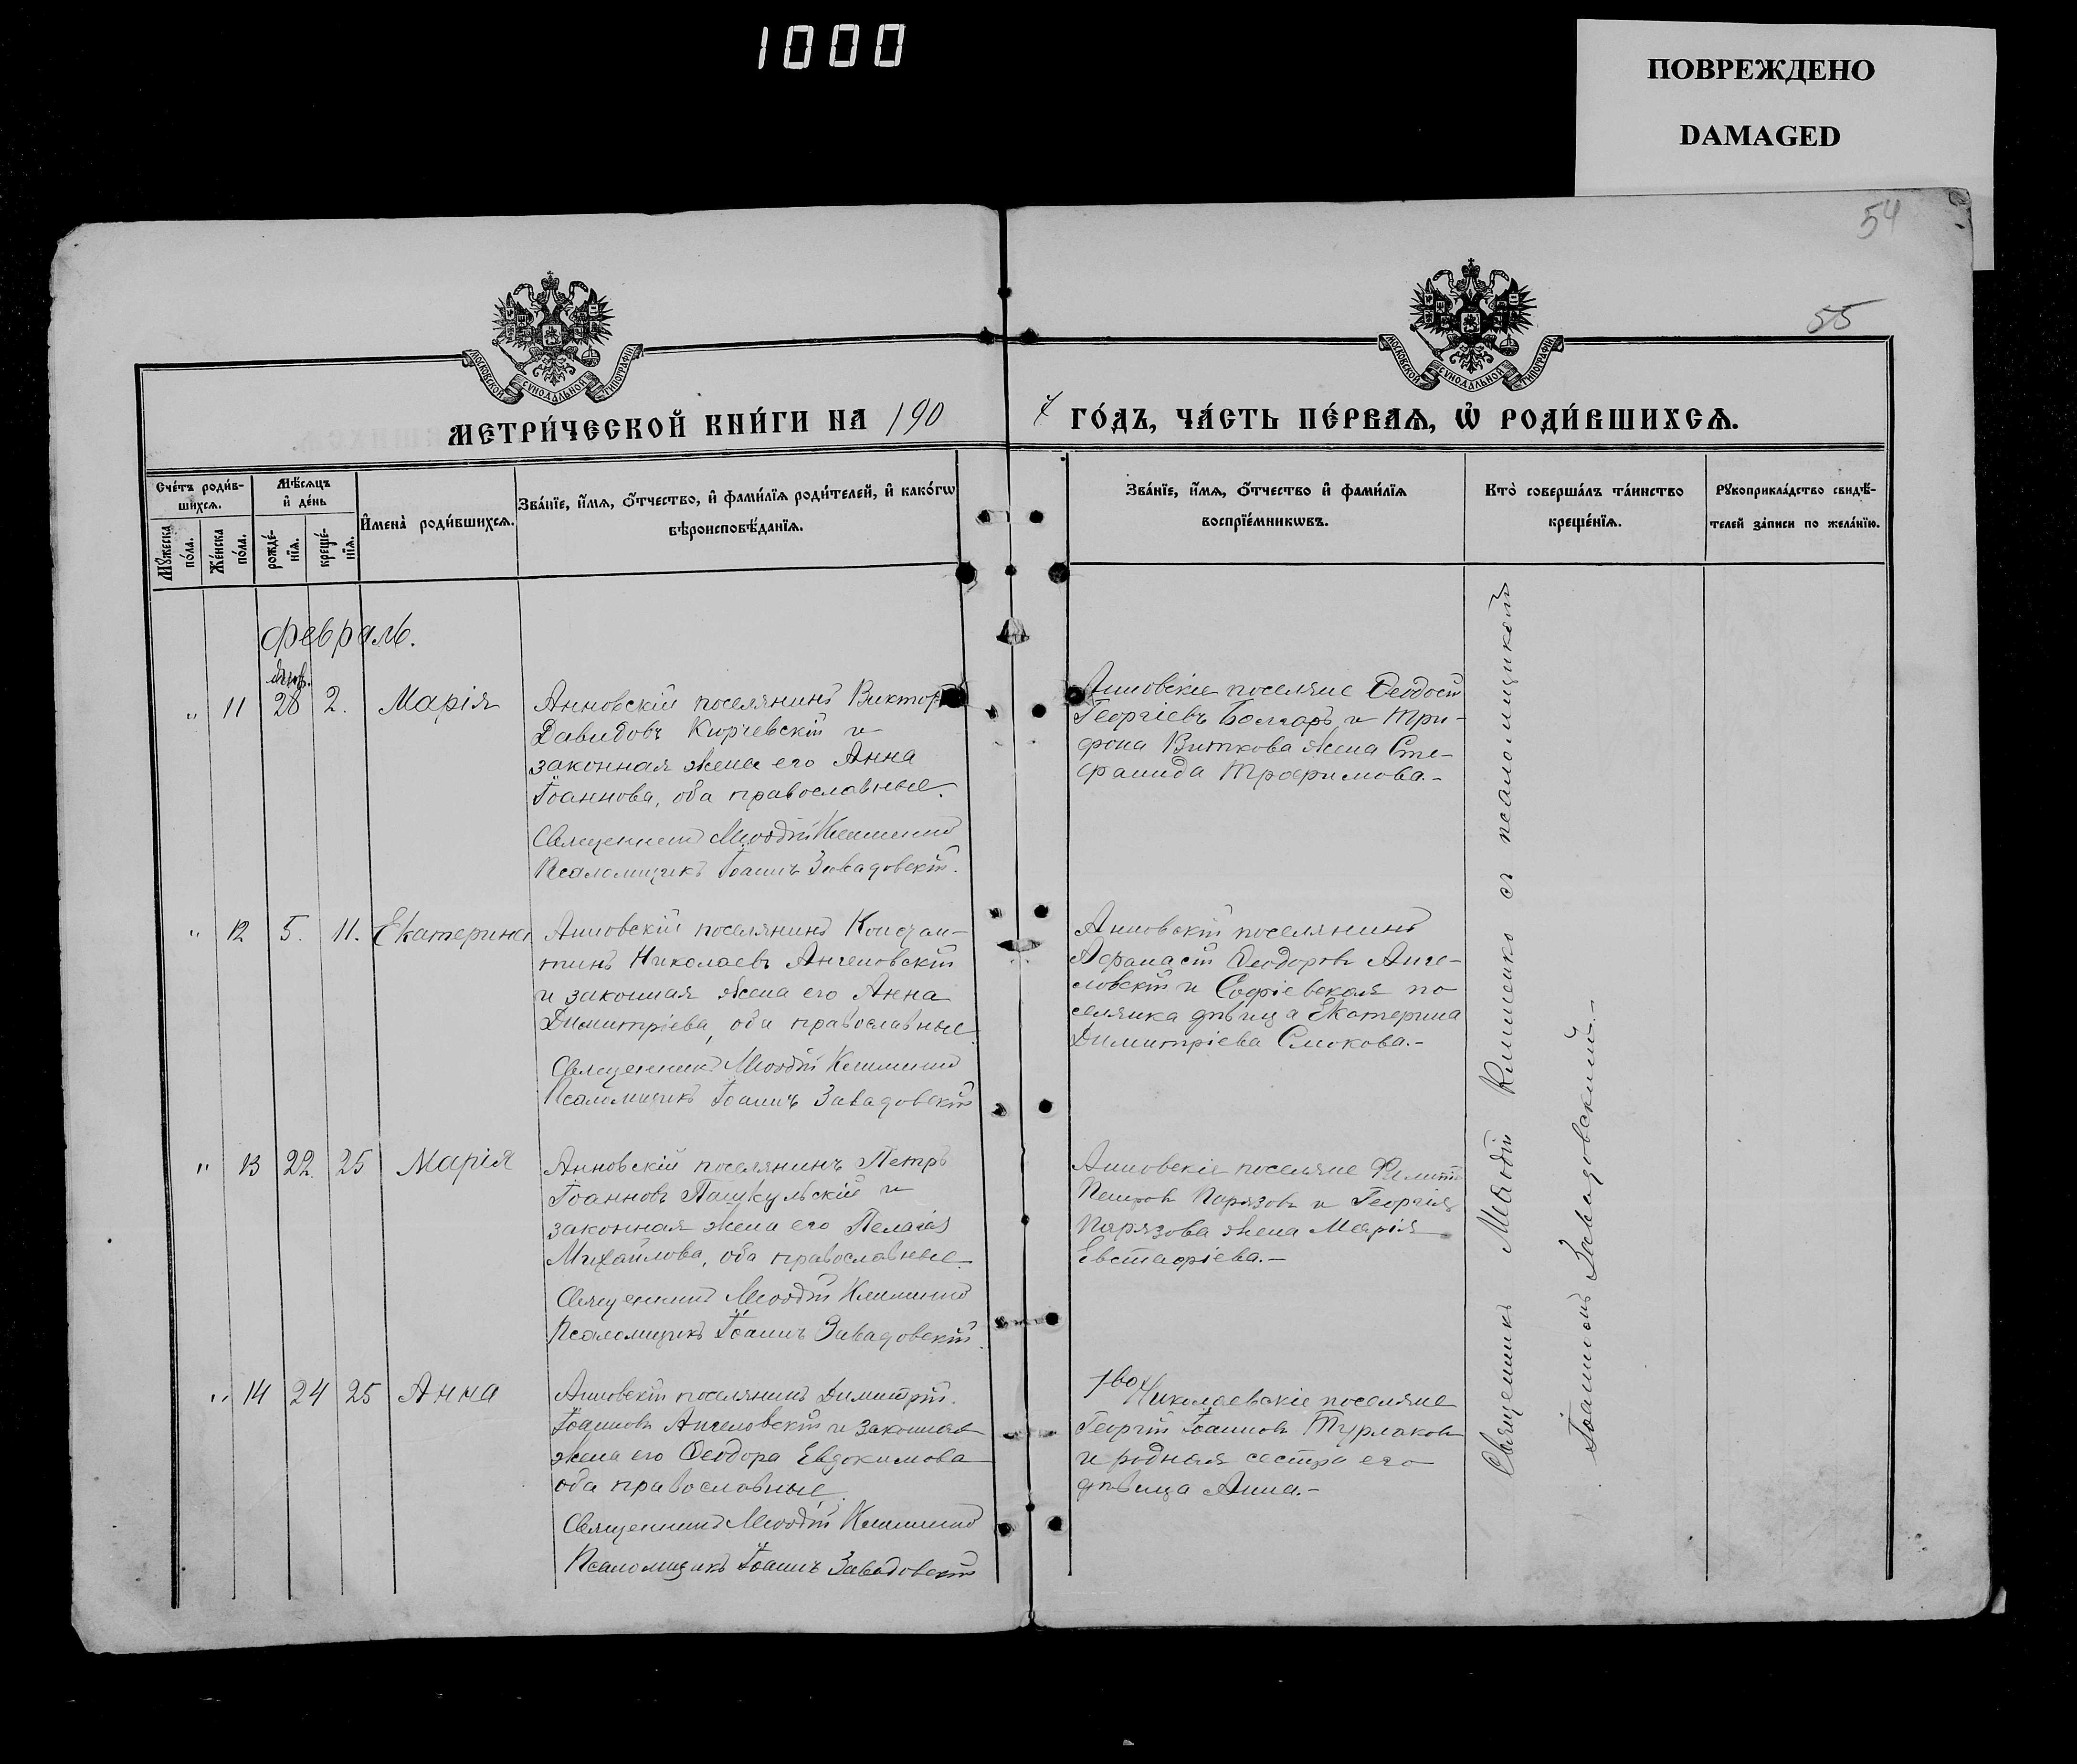 1000
ПОВРЕЖДЕНО
DAMAGED
54
55
МОСКОВСКОЙ СѴНОДАЛЬНОЙ ТИПОГРАФІИ
МОСКОВСКОЙ СѴНОДАЛЬНОЙ ТИПОГРАФІИ
МЕТРИ́ЧЕСКОЙ КНИ́ГИ НА 190
7 ГО́ДЪ, ЧА́СТЬ ПЕ́РВАѦ, Ѡ҆ РОДИ́ВШИХСѦ.
Сче́тъ роди́в-
шихсѧ.
Мꙋ́жеска по́ла.
Же́нска по́ла.
Мѣ́сѧцъ
и҆ де́нь
рожде́-
нїѧ.
креще́-
нїѧ.
И҆мена̀ роди́вшихсѧ.
Зва́нїе, и҆́мѧ, ѻ҆́тчество, и҆ фами́лїѧ роди́телей, и҆ како́гѡ
вѣроисповѣ́данїѧ.
Зва́нїе, и҆́мѧ, ѻ҆́тчество и҆ фами́лїѧ
воспрїе́мникѡвъ.
Кто̀ соверша́лъ та́инство
креще́нїѧ.
Рꙋкоприкла́дство свидѣ́-
телей за́писи по жела́нїю.
Февраль.
Янв.
" 11 28 2. Марія
Анновскій поселянинъ Викторъ
Давидовъ Кюрчевскій и
законная жена его Анна
Іоаннова, оба православные.
Священникъ Меѳодій Клименко
Псаломщикъ Іоаннъ Завадовскій.
Анновскіе поселяне Ѳеодосій
Георгіевъ Болгаръ и Три-
фона Виткова жена Сте-
фанида Трофимова.-
" 12 5. 11. Екатерина
Анновскій поселянинъ Констан-
тинъ Николаевъ Ангеловскій
и законная жена его Анна
Димитріева, оба православные
Священникъ Меѳодій Клименко
Псаломщикъ Іоаннъ Завадовскій
Анновскій поселянинъ
Афанасій Ѳеодоровъ Анге-
ловскій и Софіевская по
селянка дѣвица Екатерина
Димитріева Слюкова.-
" 13 22. 25 Марія
Анновскій поселянинъ Петръ
Іоанновъ Пашкульскій и
законная жена его Пелагія
Михайлова, оба православные
Священникъ Меѳодій Клименко
Псаломщикъ Іоаннъ Завадовскій.
Анновскіе поселяне
Петровъ Парязовъ и Георгія
Парязова жена Марія
Евстафіева.-
" 14 24 25 Анна
Анновскій поселянинъ Димитрій
Іоанновъ Ангеловскій и законная
жена его Ѳеодора Евдокимова
оба православные.
Священникъ Меѳодій Клименко
Псаломщикъ Іоаннъ Завадовскій
1во Николаевскіе поселяне
Георгій Іоанновъ Турлаковъ
и родная сестра его
дѣвица Анна.-
Священникъ Меѳодій Клименко съ псаломщикомъ
Іоанномъ Завадовскимъ.-